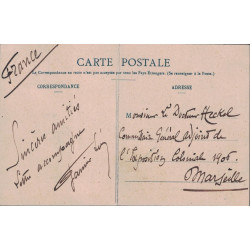 France
CARTE POSTALE
La Correspondance au recto n'est pas acceptée par tous les Pays Étrangers. (Se renseigner à la Poste.)
CORRESPONDANCE
ADRESSE
Sincères amitiés
Lettre accompagne
Monsieur le Docteur Heckel
Commissaire Général adjoint de
l'Exposition Coloniale 1906.
Marseille